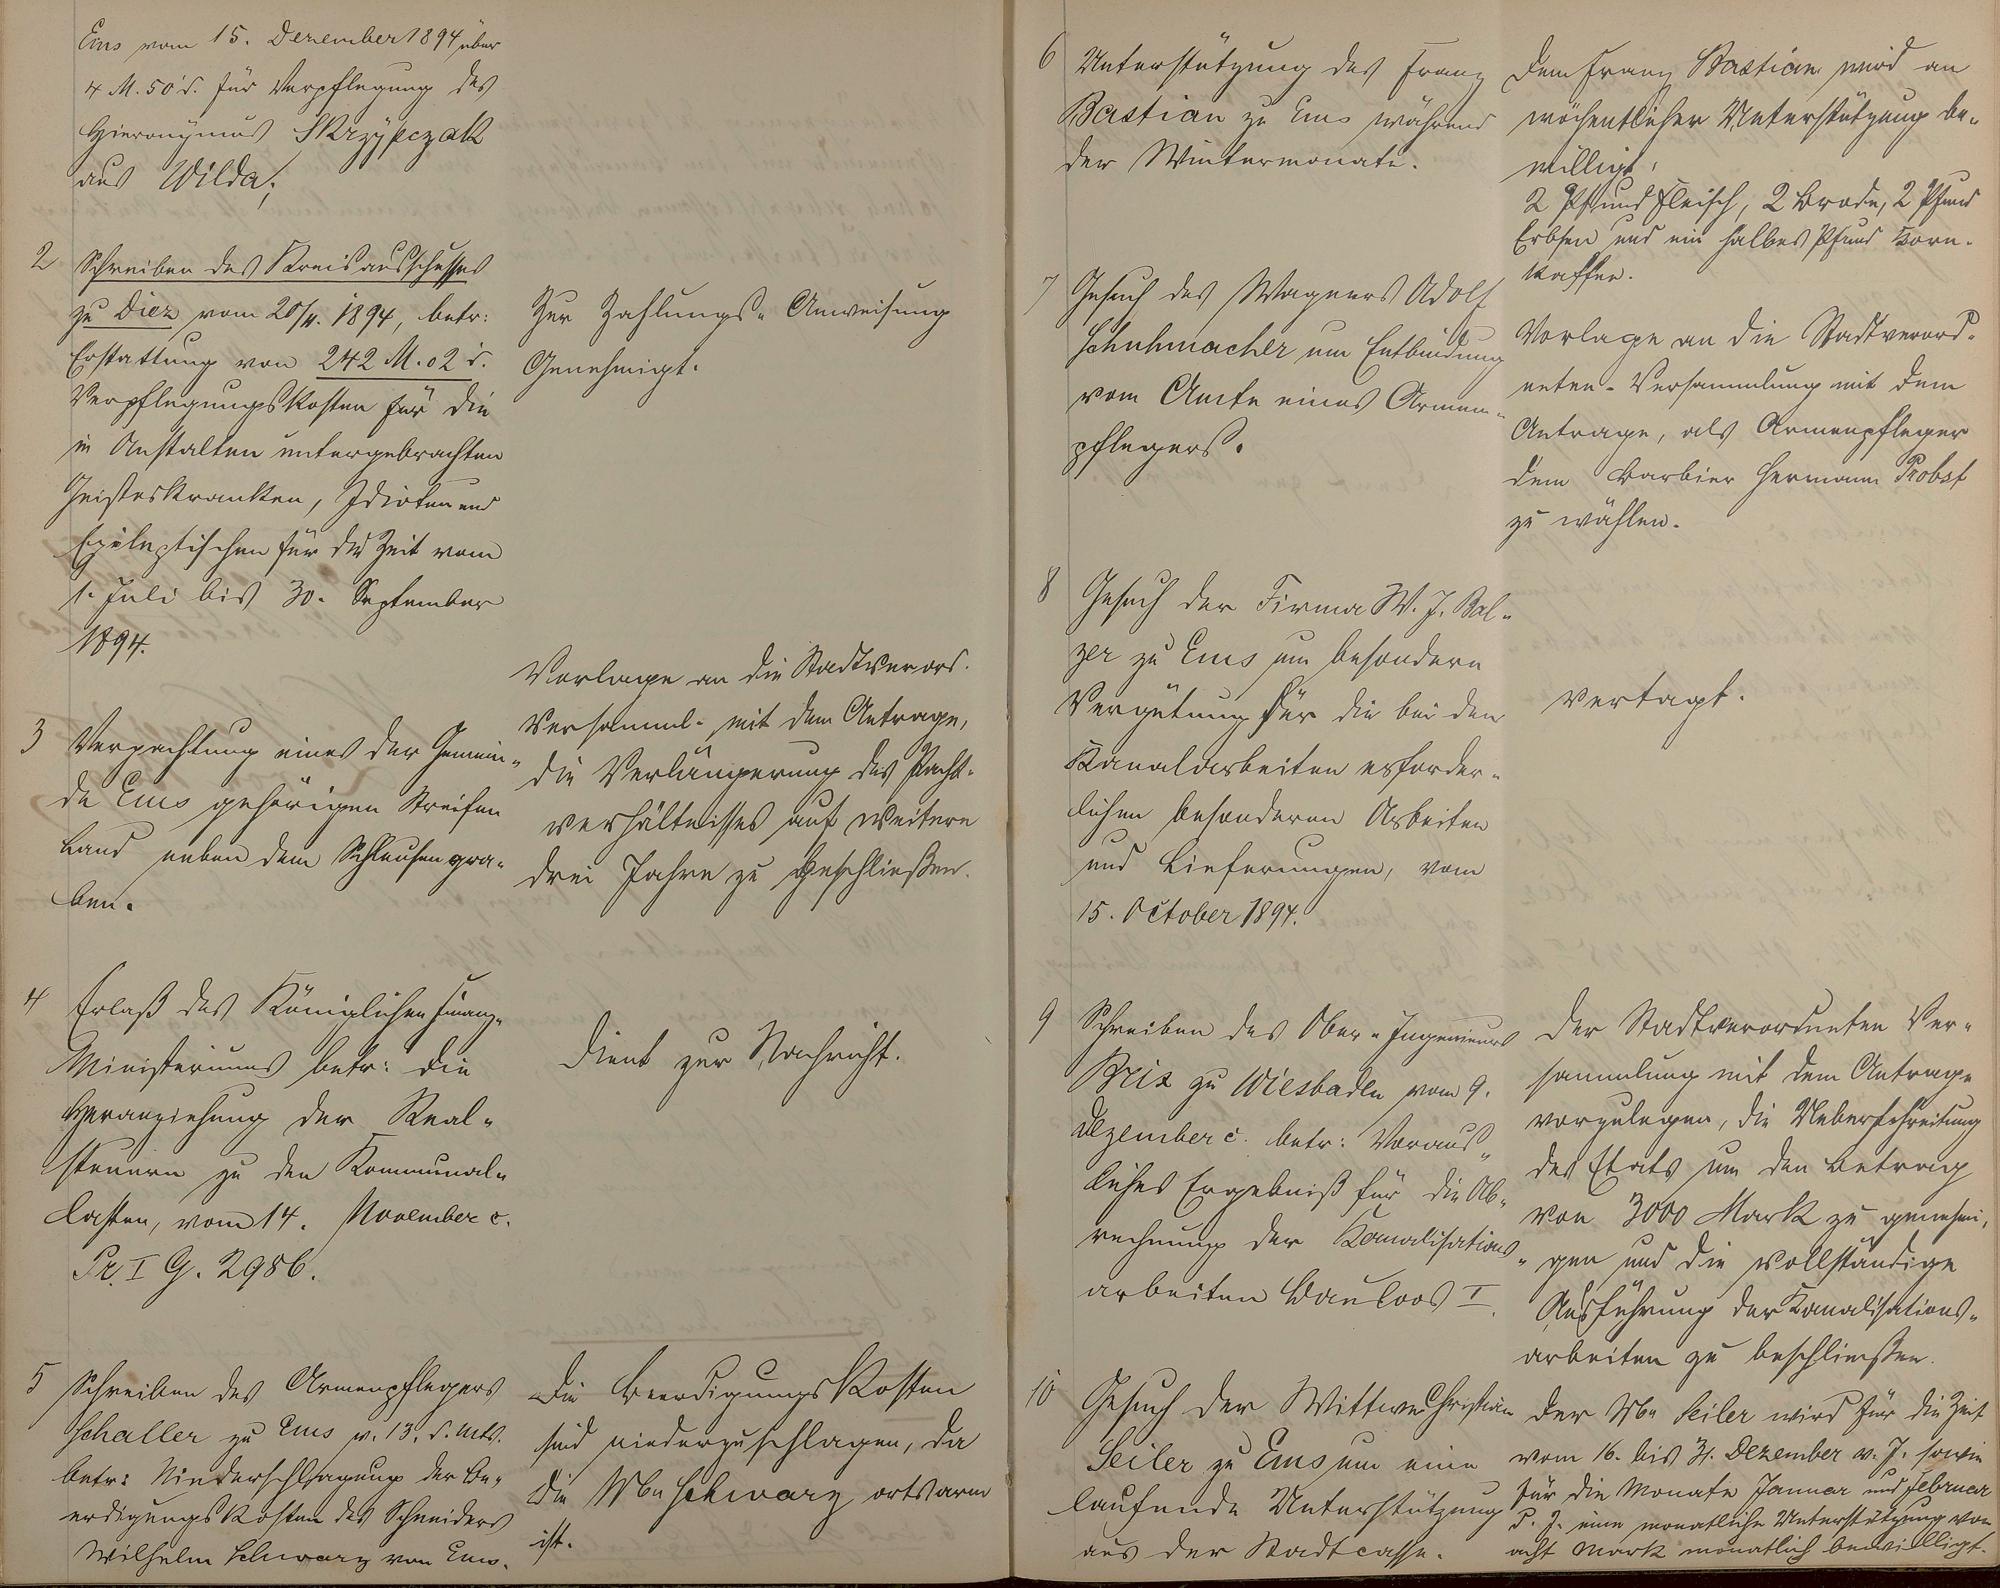 Ems vom 15. Dezember 1894 über
4 M. 50 d. für Verpflegung des
Hieronymus Skrzypczak
aus Wilda;
2 Schreiben des Kreisausschusses
zu Diez vom 20/11. 1894, betr:
Erstattung von 242 M. 02 d.
Verpflegungskosten für die
in Anstalten untergebrachten
Geisteskranken, Idioten und
Epileptischen für die Zeit vom
1. Juli bis 30. September
1894.
Zur Zahlungs-Anweisung
Genehmigt.
3 Verpachtung eines der Gemein-
de Ems gehörigen Streifen
Land neben dem Schleusengra-
ben.
Vorlage an die Stadtverord.
Versamml. mit dem Antrage,
die Verlängerung des Pacht-
verhältnisses auf weitere
drei Jahre zu beschließen.
4 Erlaß des Königlichen Finanz-
Ministeriums betr: die
Heranziehung der Real-
steuern zu den Kommunal-
lasten, vom 14. November c.
Pr. I G. 2986.
Dient zur Nachricht.
5 Schreiben des Armenpflegers
Schaller zu Ems v. 13. d. Mts.
betr: Niederschlagung der Be-
erdigungskosten des Schneiders
Wilhelm Schwarz von Ems.
Die Beerdigungskosten
sind niederzuschlagen, da
die Wwe Schwarz ortsarm
ist.
6 Unterstützung des Franz
Bastian zu Ems während
der Wintermonate.
Dem Franz Bastian wird an
wöchentlicher Unterstützung be-
willigt:
2 Pfund Fleisch, 2 Brode, 2 Pfund
Erbsen und ein halbes Pfund Korn-
kaffee.
7 Gesuch des Wagners Adolf
Schuhmacher um Entbindung
vom Amte eines Armen-
pflegers.
Vorlage an die Stadtverord-
neten-Versammlung mit dem
Antrage, als Armenpfleger
dem Barbier Hermann Probst
zu wählen.
8 Gesuch der Firma W. J. Bal-
zer zu Ems um besondere
Vergütung für die bei den
Kanalarbeiten erforder-
lichen besonderen Arbeiten
und Lieferungen, vom
15. October 1894.
Vertagt.
9 Schreiben des Ober-Ingenieurs
Brix zu Wiesbaden vom 9.
Dezember c. betr: Voraus-
liches Ergebniß für die Ab-
rechnung der Kanalisations-
arbeiten Bauloos I.
Der Stadtverordneten Ver-
sammlung mit dem Antrage
vorzulegen, die Ueberschreitung
des Etats um den Betrag
von 3000 Mark zu genehmi-
gen und die vollständige
Ausführung der Kanalisations-
arbeiten zu beschließen.
10 Gesuch der Wittwe Christian
Seiler zu Ems um eine
laufende Unterstützung
aus der Stadtcasse.
Der Wwe Seiler wird für die Zeit
vom 16. bis 31. Dezember v. J. sowie
für die Monate Januar und Februar
d. J. eine monatliche Unterstützung von
acht Mark monatlich bewilligt.